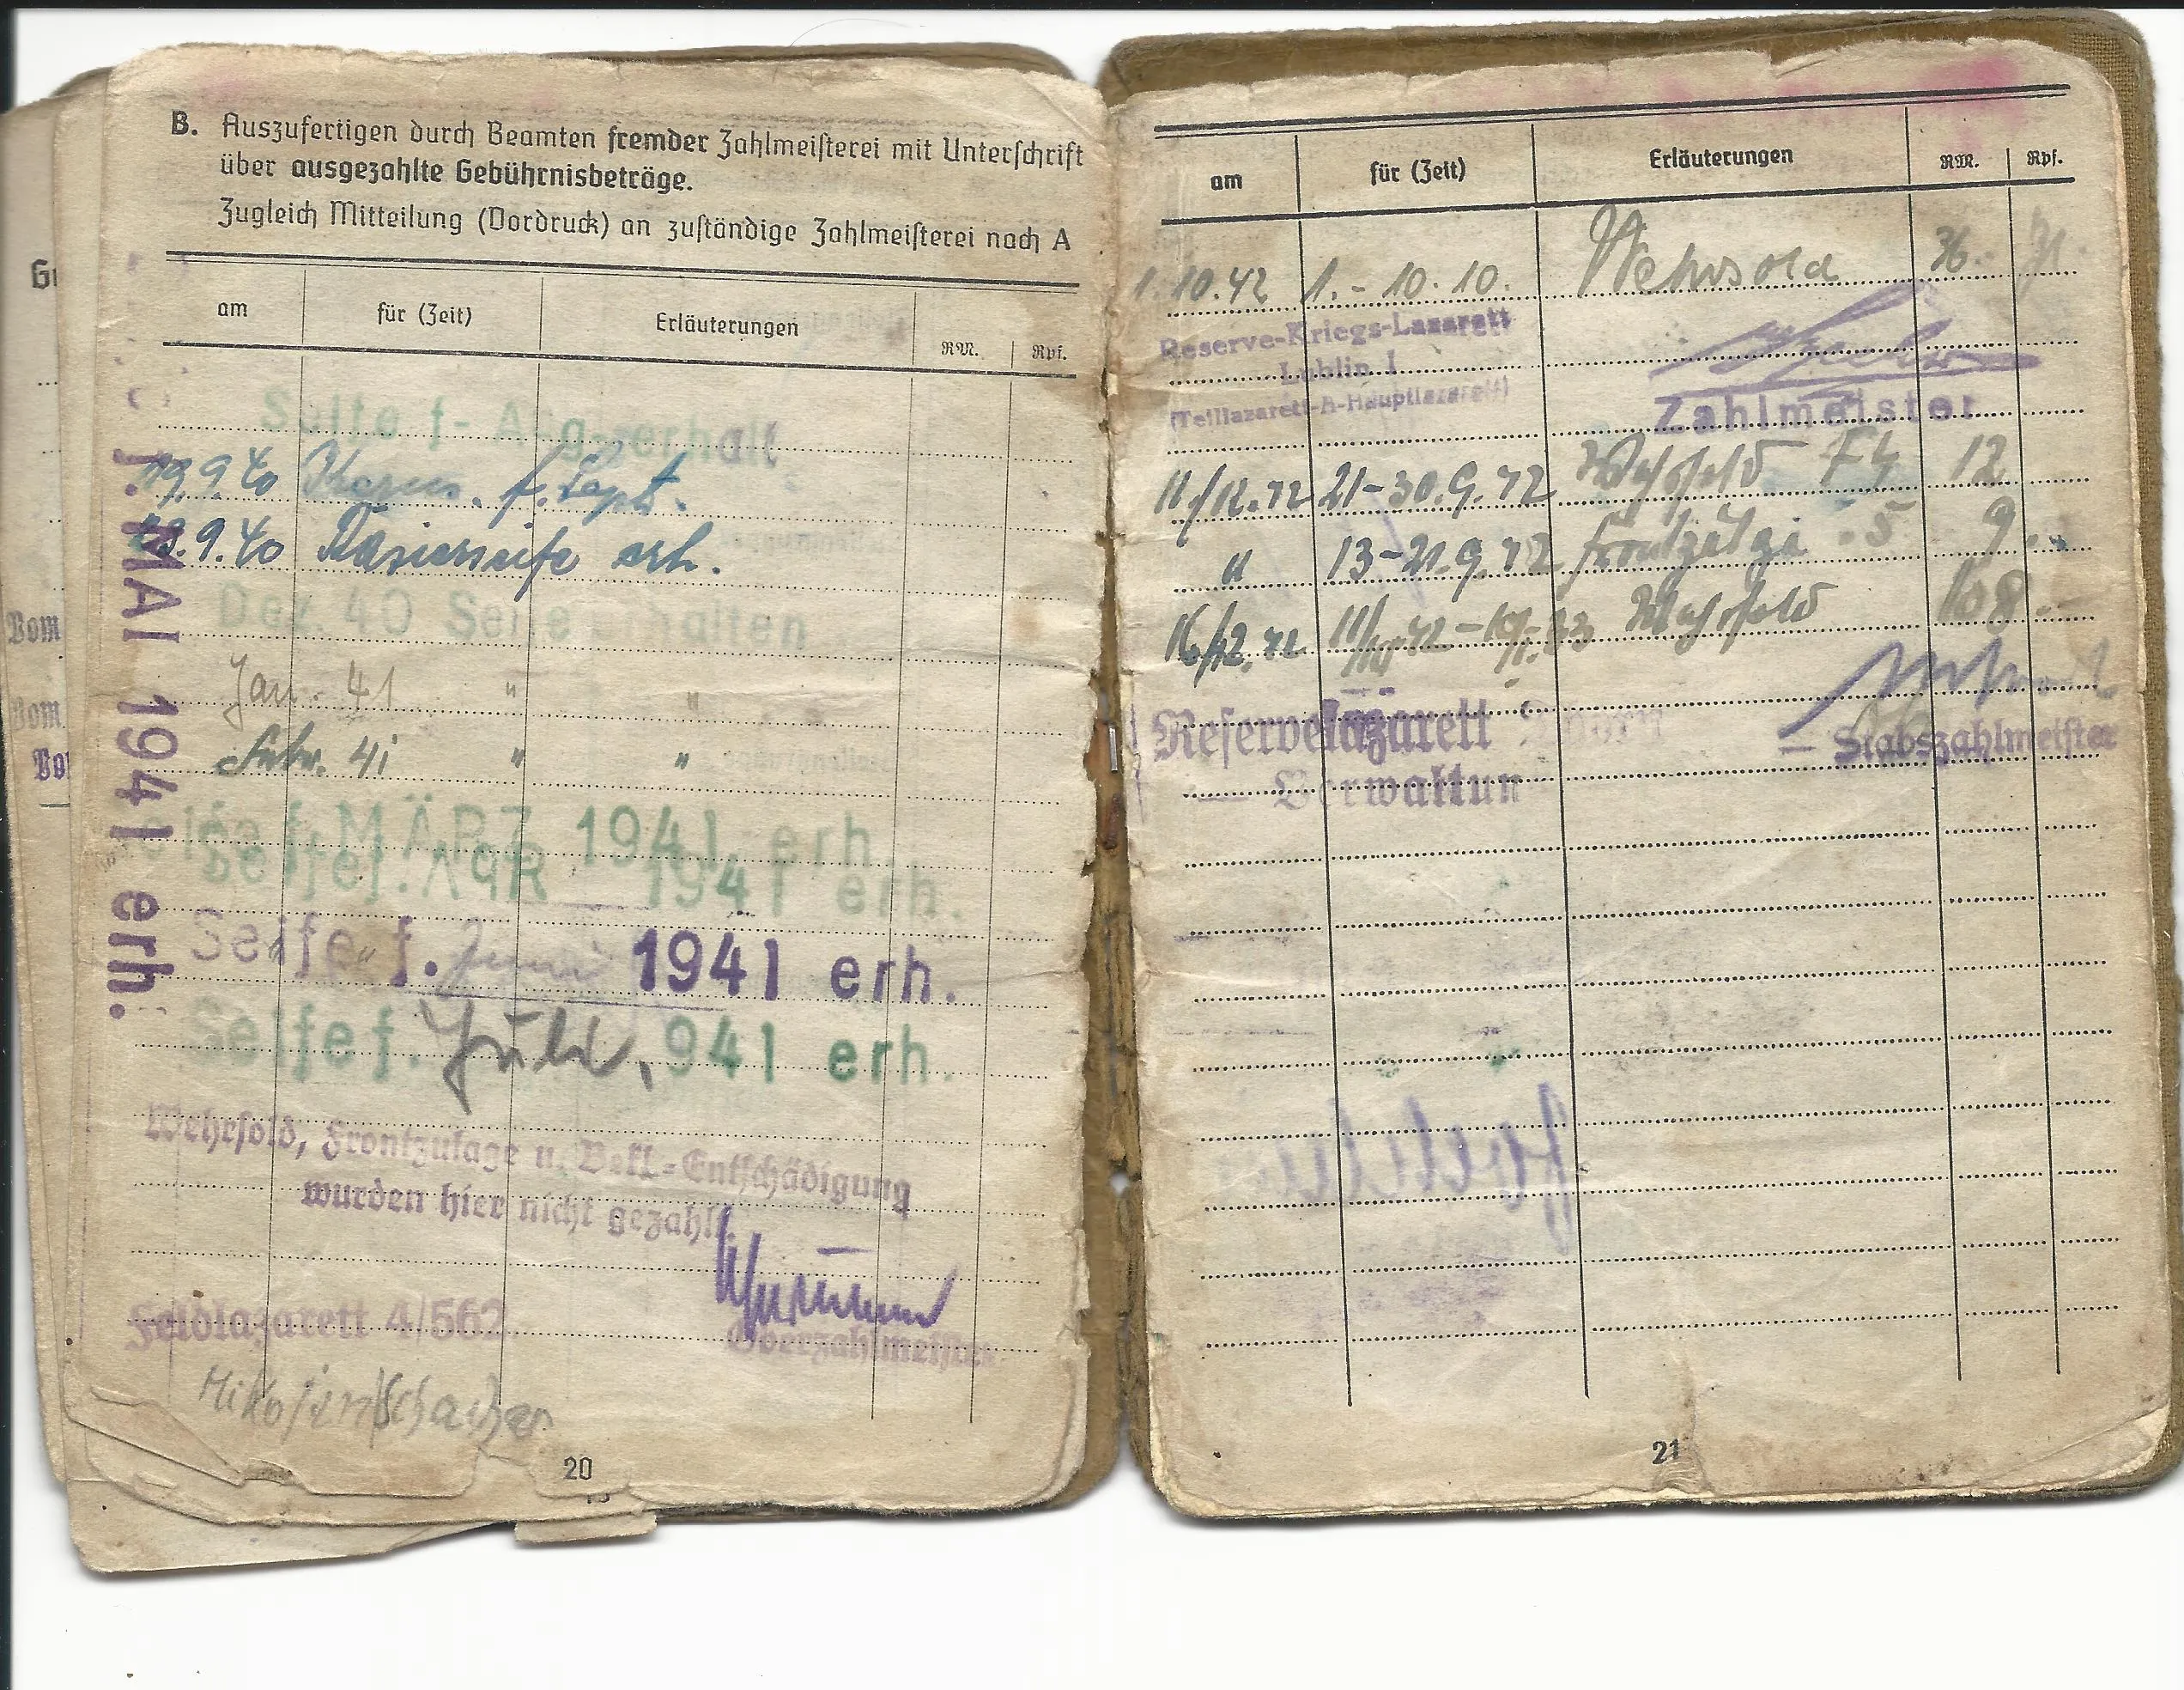 B. Auszufertigen durch Beamten fremder Zahlmeisterei mit Unterschrift
über ausgezahlte Gebührnisbeträge.
Zugleich Mitteilung (Vordruck) an zuständige Zahlmeisterei nach A
am für (Zeit) Erläuterungen RM. Rpf.
Seife f. Aug. erhalt
19.9.40 f. Sept.
19.9.40 Rasierseife erh.
Dez. 40 Seife erhalten
Jan. 41 " "
Febr. 41 " "
Seife f. MÄRZ 1941 erh.
Seife f. APR 1941 erh.
Seife f. Juni 1941 erh.
Seife f. Juli 1941 erh.
f. MAI 1941 erh.
Wehrsold, Frontzulage u. Bekl.-Entschädigung
wurden hier nicht gezahlt.
Feldlazarett 4/562
Oberzahlmeister
20
am für (Zeit) Erläuterungen RM. Rpf.
1.10.42 1.-10.10. Wehrsold 36.-
Reserve-Kriegs-Lazarett
Lublin I
(Teillazarett-A-Hauptlazarett)
Zahlmeister
21-30.9.42 Wehrsold 12
" 13-21.9.42 Frontzulage 9.
16/12.42 Wehrsold 108.-
Reservelazarett Thorn
Verwaltung
Stabszahlmeister
21